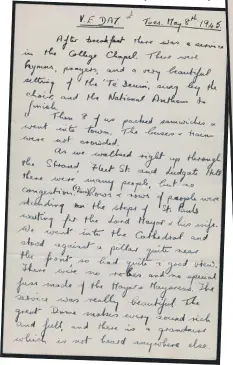 V.E. DAY Tues. May 8th 1945.
After breakfast there was a service
in the College Chapel. There were
hymns, prayers, and a very beautiful
setting of the Te Deum, sung by the
choir, and the National Anthem to
finish.
Then 8 of us packed sandwiches &
went into town. The buses & train
were not crowded.
As we walked right up through
the Strand, Fleet St. and Ludgate Hill
there were many people, but no
congestion. Rows & rows of people were
standing on the steps of St. Pauls
waiting for the Lord Mayor & his wife.
We went into the Cathedral and
stood against a pillar quite near
the front so had quite a good view.
There were no robes and no special
fuss made of the Mayor & Mayoress. The
service was really beautiful. The
great Dome makes every sound rich
and full, and there is a grandeur
which is not heard anywhere else.